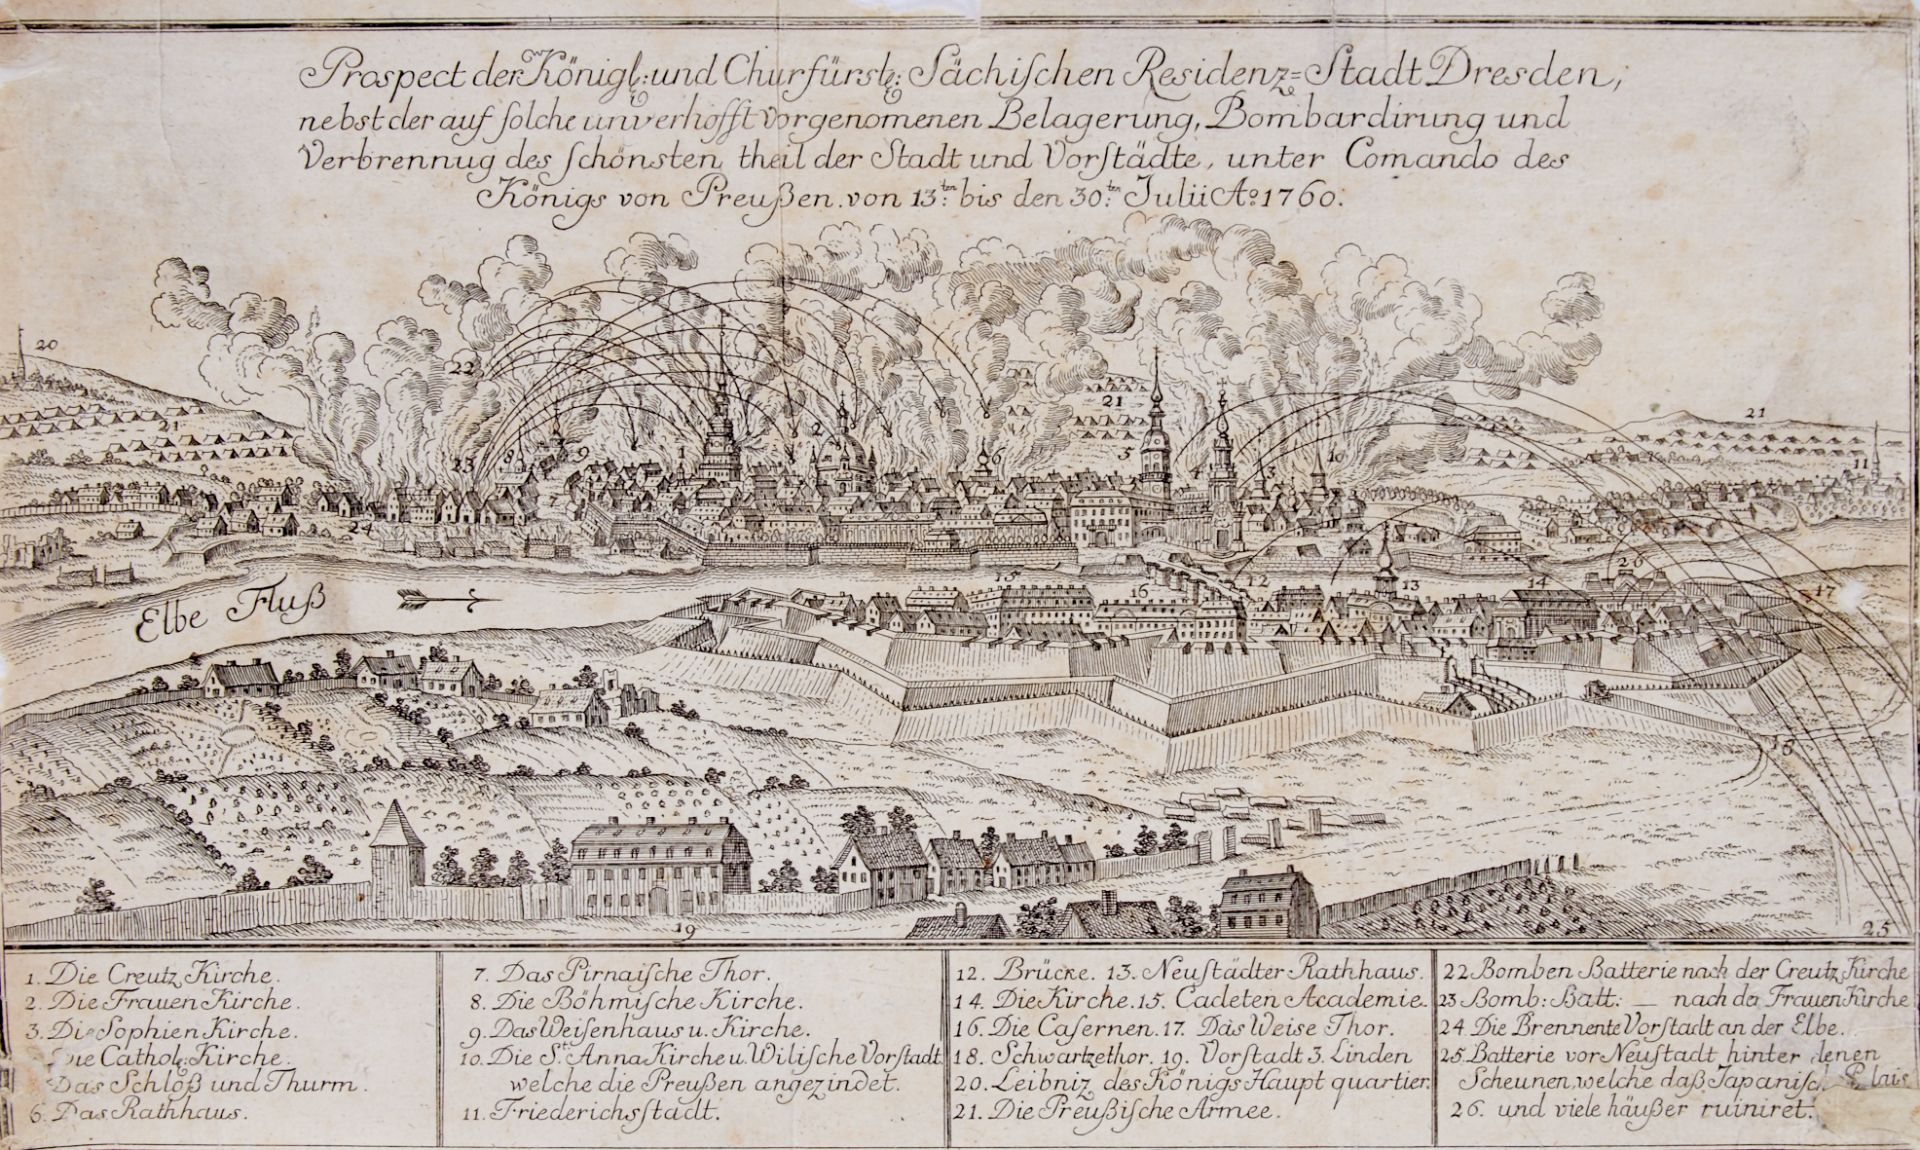 Prospect der Königl: und Churfürstl: Sächischen Residenz=Stadt Dresden,
nebst der auf solche unverhofft vorgenomenen Belagerung, Bombardirung und
Verbrennug des schönsten theil der Stadt und Vorstädte, unter Comando des
Königs von Preußen. von 13ten: bis den 30ten: Julii Ao: 1760.
20
22
21
21
21
23
8
9
1
2
6
5
4
3
10
11
7
24
Elbe Fluß
15
16
12
13
14
26
17
18
19
25
1. Die Creutz Kirche.
2. Die Frauen Kirche.
3. Die Sophien Kirche.
Die Cathol: Kirche.
Das Schloß und Thurm.
6. Das Rathhaus.
7. Das Pirnaische Thor.
8. Die Böhmische Kirche.
9. Das Weisenhaus u. Kirche.
10. Die St. Anna Kirche u. Wilische Vorstadt
welche die Preußen angezindet.
11. Friederichsstadt.
12. Brücke. 13. Neustädter Rathhaus.
14. Die Kirche. 15. Cadeten Academie.
16. Die Casernen. 17. Das Weise Thor.
18. Schwartzethor. 19. Vorstadt 3. Linden
20. Leibniz des Königs Haupt quartier.
21. Die Preußische Armee.
22 Bomben Batterie nach der Creutz Kirche
23 Bomb: Batt: — nach der Frauen Kirche
24. Die Brennente Vorstadt an der Elbe.
25. Batterie vor Neustadt hinter denen
Scheunen, welche daß Japanisch Plais
26. und viele häußer ruiniret.